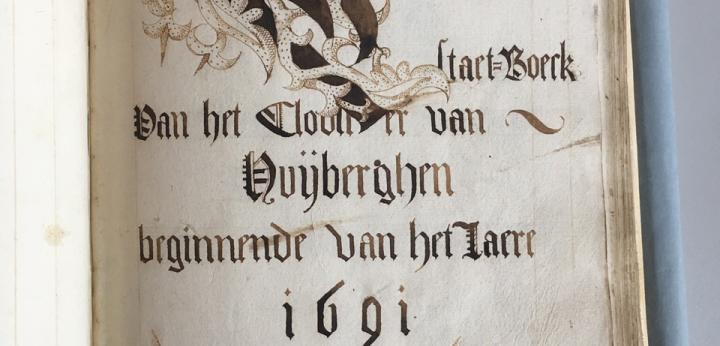 ſtaet=Boeck
Van het Clooſter van
Huijberghen
beginnende van het Iaere
1691